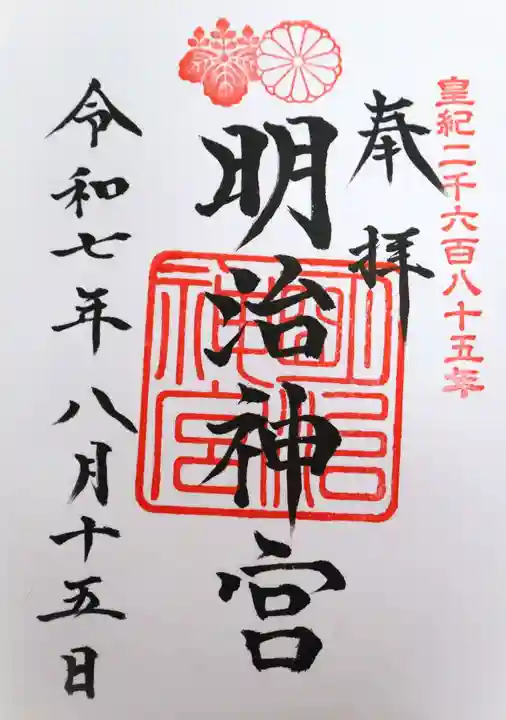 皇紀二千六百八十五年
奉拝
明治神宮
明治神宮
令和七年八月十五日